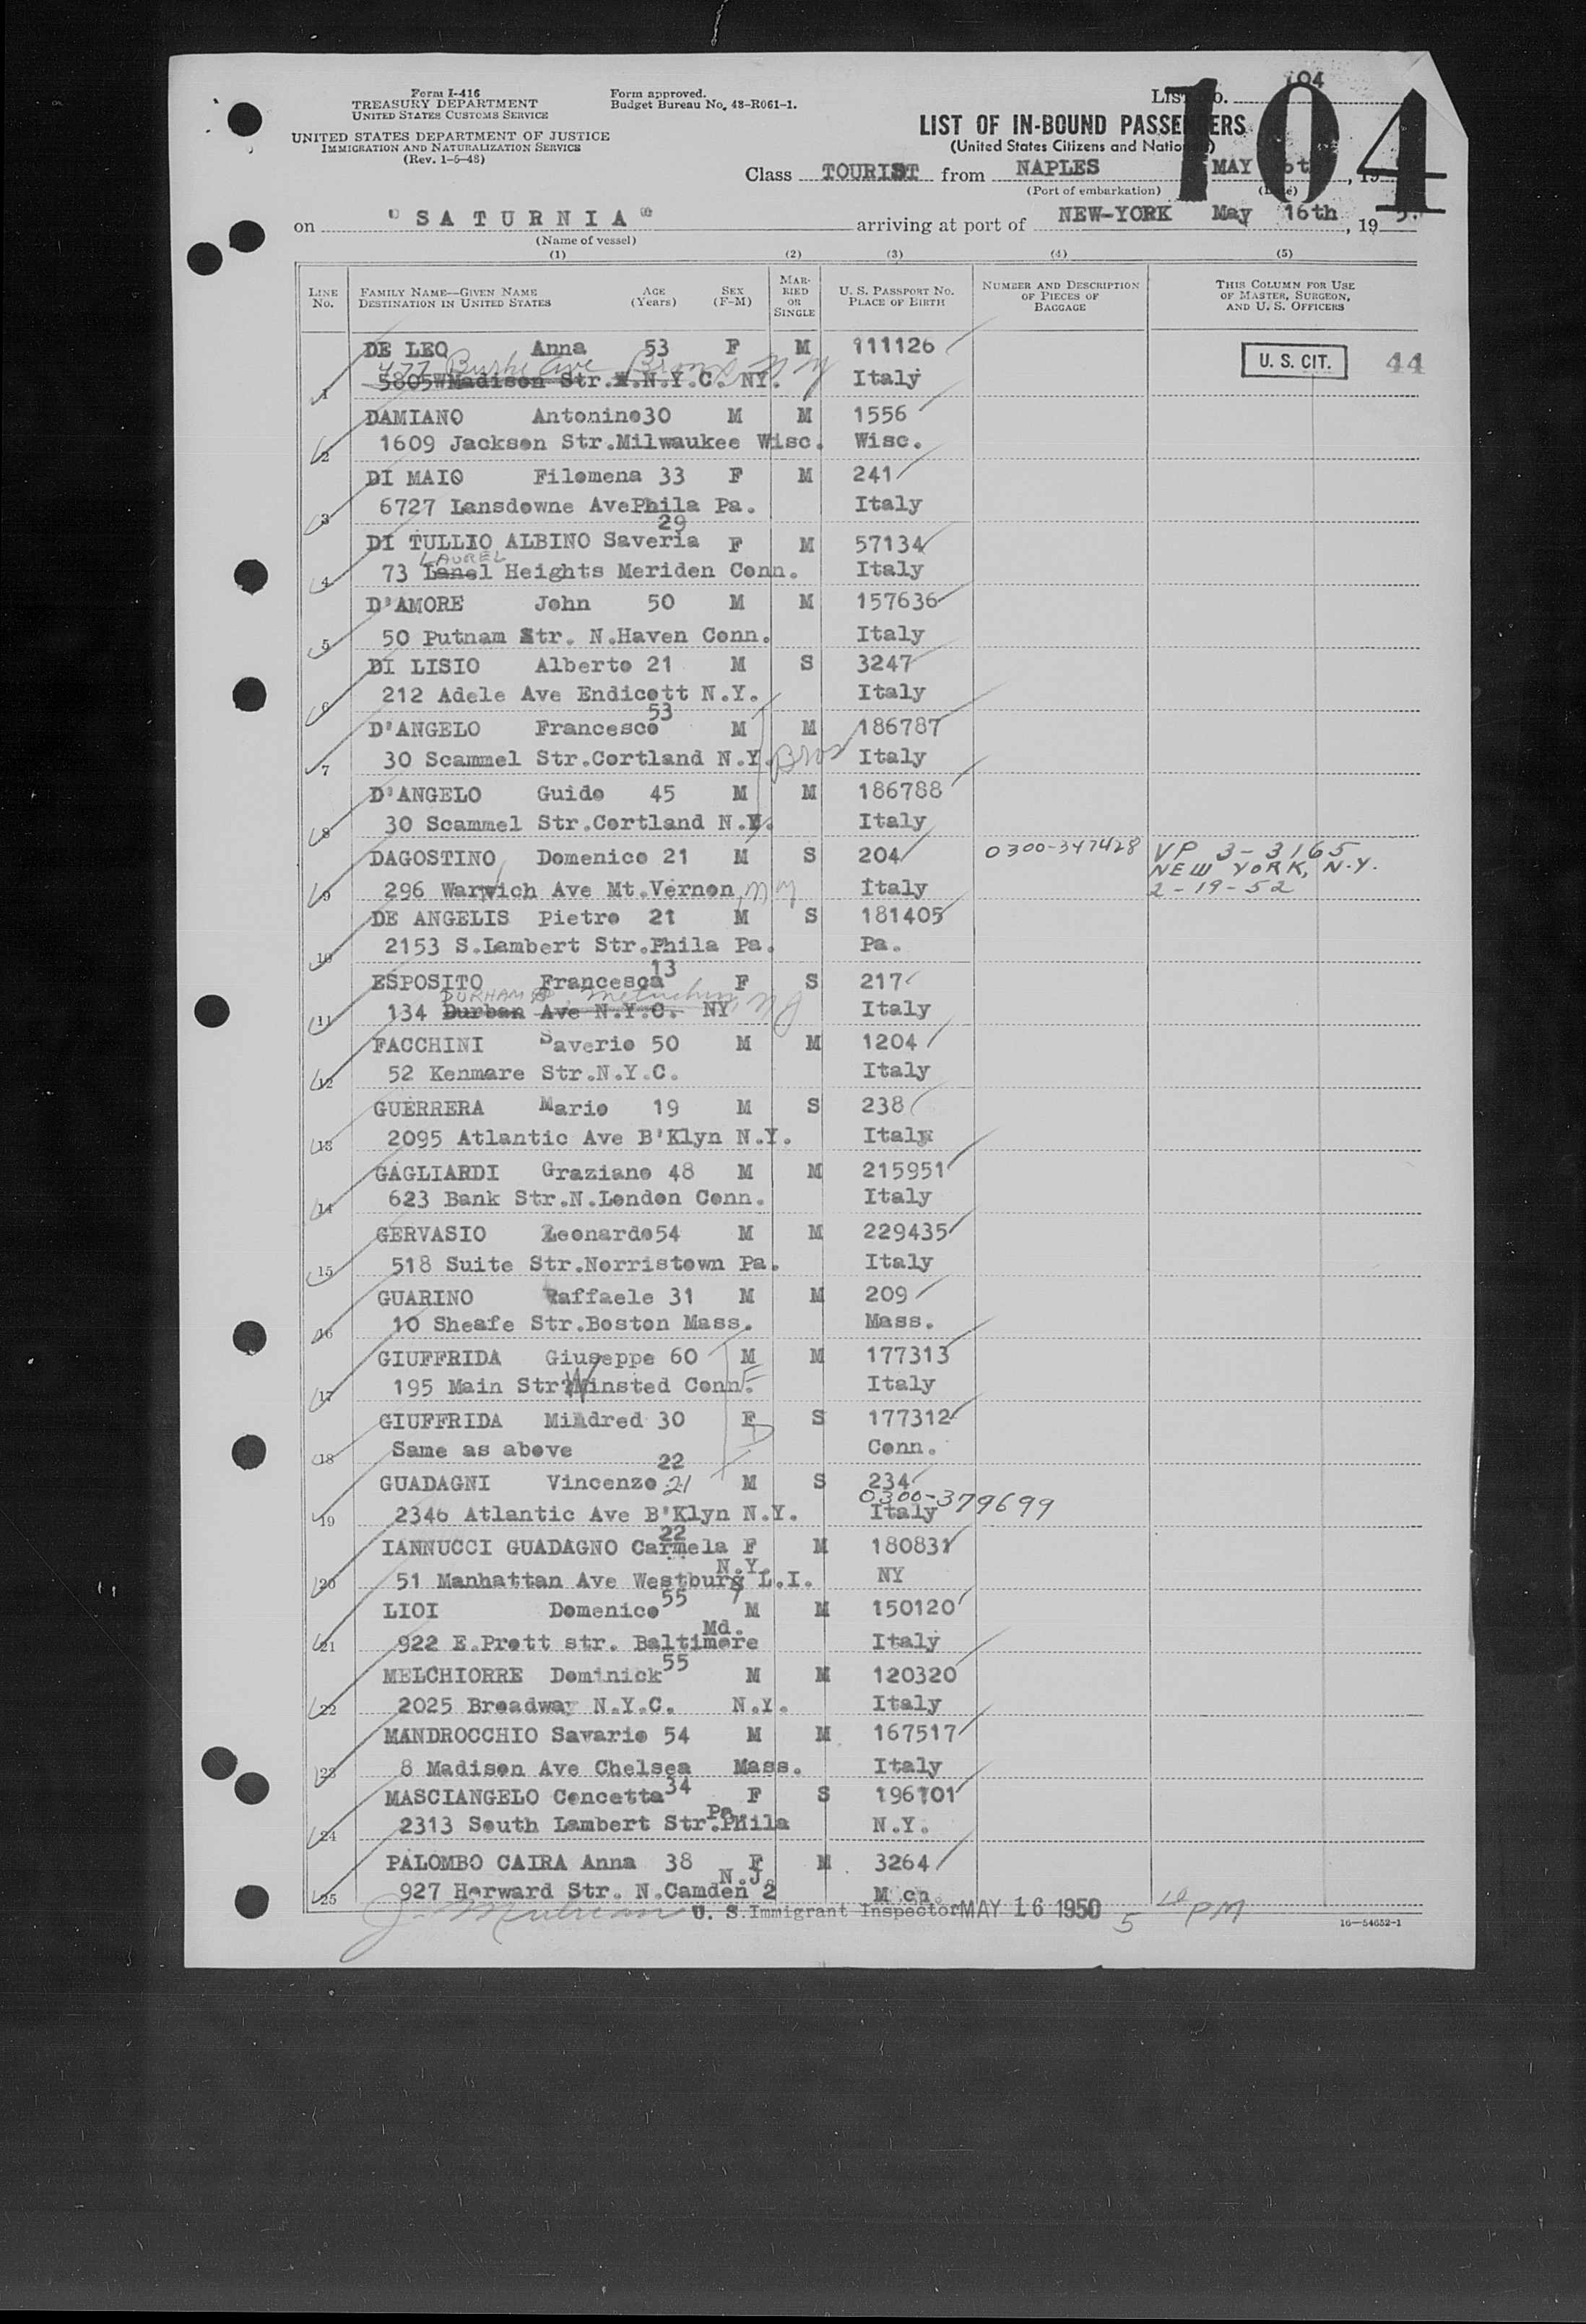 Form I-416
TREASURY DEPARTMENT
UNITED STATES CUSTOMS SERVICE
UNITED STATES DEPARTMENT OF JUSTICE
IMMIGRATION AND NATURALIZATION SERVICE
(Rev. 1-5-48)
Form approved.
Budget Bureau No. 48-R061-1.
List No. 104
104
LIST OF IN-BOUND PASSENGERS
(United States Citizens and Nationals)
Class TOURIST from NAPLES MAY 6th, 19
(Port of embarkation) (Date)
on "SATURNIA" arriving at port of NEW-YORK May 16th, 195
(Name of vessel)
(1) (2) (3) (4) (5)
LINE No. FAMILY NAME—GIVEN NAME DESTINATION IN UNITED STATES AGE (Years) SEX (F-M) MARRIED OR SINGLE U. S. PASSPORT NO. PLACE OF BIRTH NUMBER AND DESCRIPTION OF PIECES OF BAGGAGE THIS COLUMN FOR USE OF MASTER, SURGEON, AND U. S. OFFICERS
DE LEO Anna 53 F M 111126 U. S. CIT. 44
777 Burke Ave Bronx NY
1 5805WMadison Str.N.N.Y.C. NY. Italy
DAMIANO Antonino30 M M 1556
2 1609 Jackson Str.Milwaukee Wisc. Wisc.
DI MAIO Filomena 33 F M 241
3 6727 Lansdowne AvePhila Pa. Italy
29
DI TULLIO ALBINO Saveria F M 57134
LAUREL
4 73 Lanel Heights Meriden Conn. Italy
D'AMORE John 50 M M 157636
5 50 Putnam Str. N.Haven Conn. Italy
DI LISIO Alberto 21 M S 3247
6 212 Adele Ave Endicott N.Y. Italy
53
D'ANGELO Francesco M M 186787
7 30 Scammel Str.Cortland N.Y. Bros Italy
D'ANGELO Guido 45 M M 186788
8 30 Scammel Str.Cortland N.Y. Italy
DAGOSTINO Domenico 21 M S 204 0300-347428 VP 3-3165
NEW YORK, N.Y.
9 296 Warwich Ave Mt.Vernon, NY Italy 2-19-52
DE ANGELIS Pietro 21 M S 181405
10 2153 S.Lambert Str.Phila Pa. Pa.
13
ESPOSITO Francesca F S 217
DURHAM Metuchen, NJ
11 134 Durban Ave N.Y.C. NY Italy
FACCHINI Saverio 50 M M 1204
12 52 Kenmare Str.N.Y.C. Italy
GUERRERA Mario 19 M S 238
13 2095 Atlantic Ave B'Klyn N.Y. Italy
GAGLIARDI Graziano 48 M M 215951
14 623 Bank Str.N.London Conn. Italy
GERVASIO Leonardo54 M M 229435
15 518 Suite Str.Norristown Pa. Italy
GUARINO Raffaele 31 M M 209
16 10 Sheafe Str.Boston Mass. Mass.
GIUFFRIDA Giuseppe 60 M M 177313
17 195 Main Str Winsted Conn. F Italy
GIUFFRIDA Mildred 30 F S 177312
18 Same as above D Conn.
22
GUADAGNI Vincenzo 21 M S 234
0300-379699
19 2346 Atlantic Ave B'Klyn N.Y. Italy
22
IANNUCCI GUADAGNO Carmela F M 180831
N.Y.
20 51 Manhattan Ave Westbury L.I. NY
LIOI Domenico 55 M M 150120
Md.
21 922 E.Prett str. Baltimore Italy
MELCHIORRE Dominick 55 M M 120320
22 2025 Broadway N.Y.C. N.Y. Italy
MANDROCCHIO Savario 54 M M 167517
23 8 Madison Ave Chelsea Mass. Italy
MASCIANGELO Concetta 34 F S 196101
Pa.
24 2313 South Lambert Str.Phila N.Y.
PALOMBO CAIRA Anna 38 F M 3264
N.J.
25 927 Horward Str. N.Camden 2 Mich.
U. S. Immigrant Inspector MAY 16 1950 5 10 PM
16—54652-1